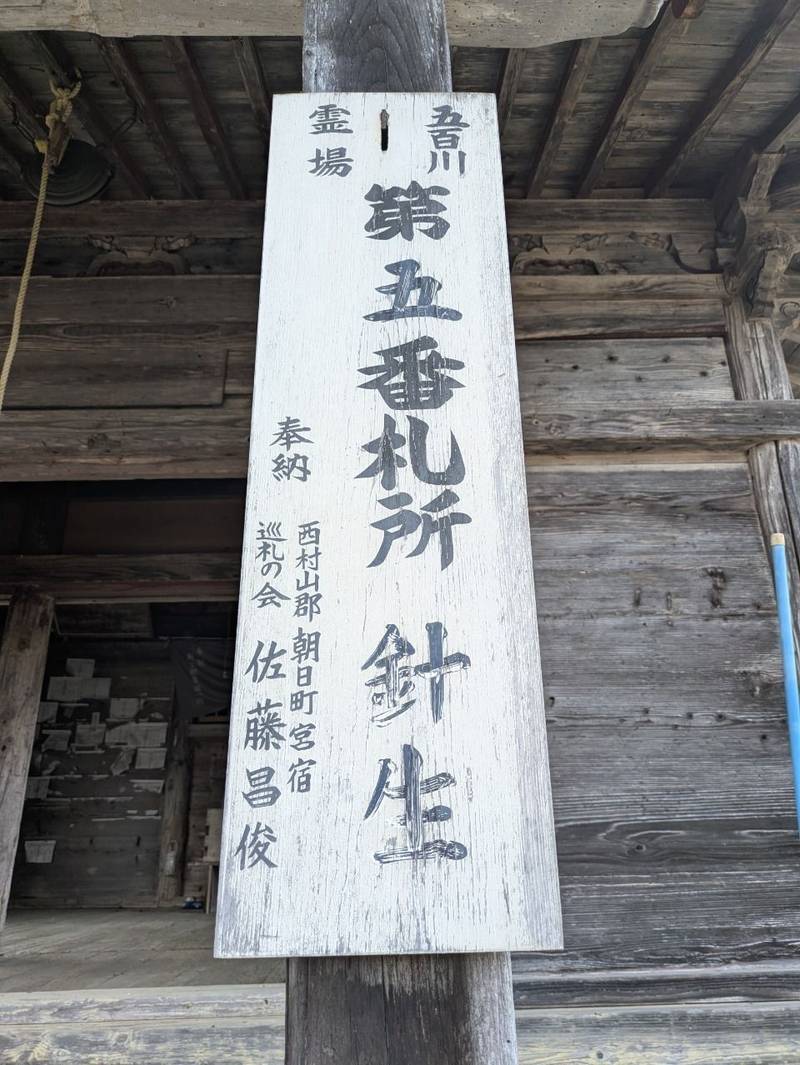 五百川
霊場
第五番札所 針生
奉納
西村山郡朝日町宮宿
巡礼の会 佐藤昌俊